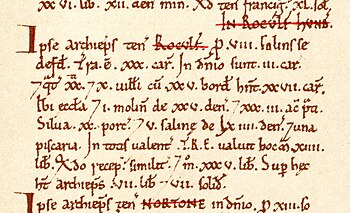 xx VI. lib. XII. den min. Xđ ten francig. XL. sol,
IN ROCVLF HVND.
Ipse archieps ten ROCVLF. p. VIII. solins se
defđ. Tra. ē. XXX. car. In dnio sunt. III. car.
7 qt xx. 7 x. uilli cū xxv borđ hnt. xxvII. car.
Ibi eccla 7 I. molin de xxv. den. 7 xxx. III. ac pti.
Silua. xx. porc. 7 v. saline de Lx IIII. den. 7 una
piscaria. In totis ualent. T.R.E. ualuit xIIII.
lib. Qdo recep. similit. 7 m. xxxv. lib. Sup hec
ht archieps. VII. lib 7 VII. solid.
Ipse archieps ten NORTONE in dnio. p XIII. so